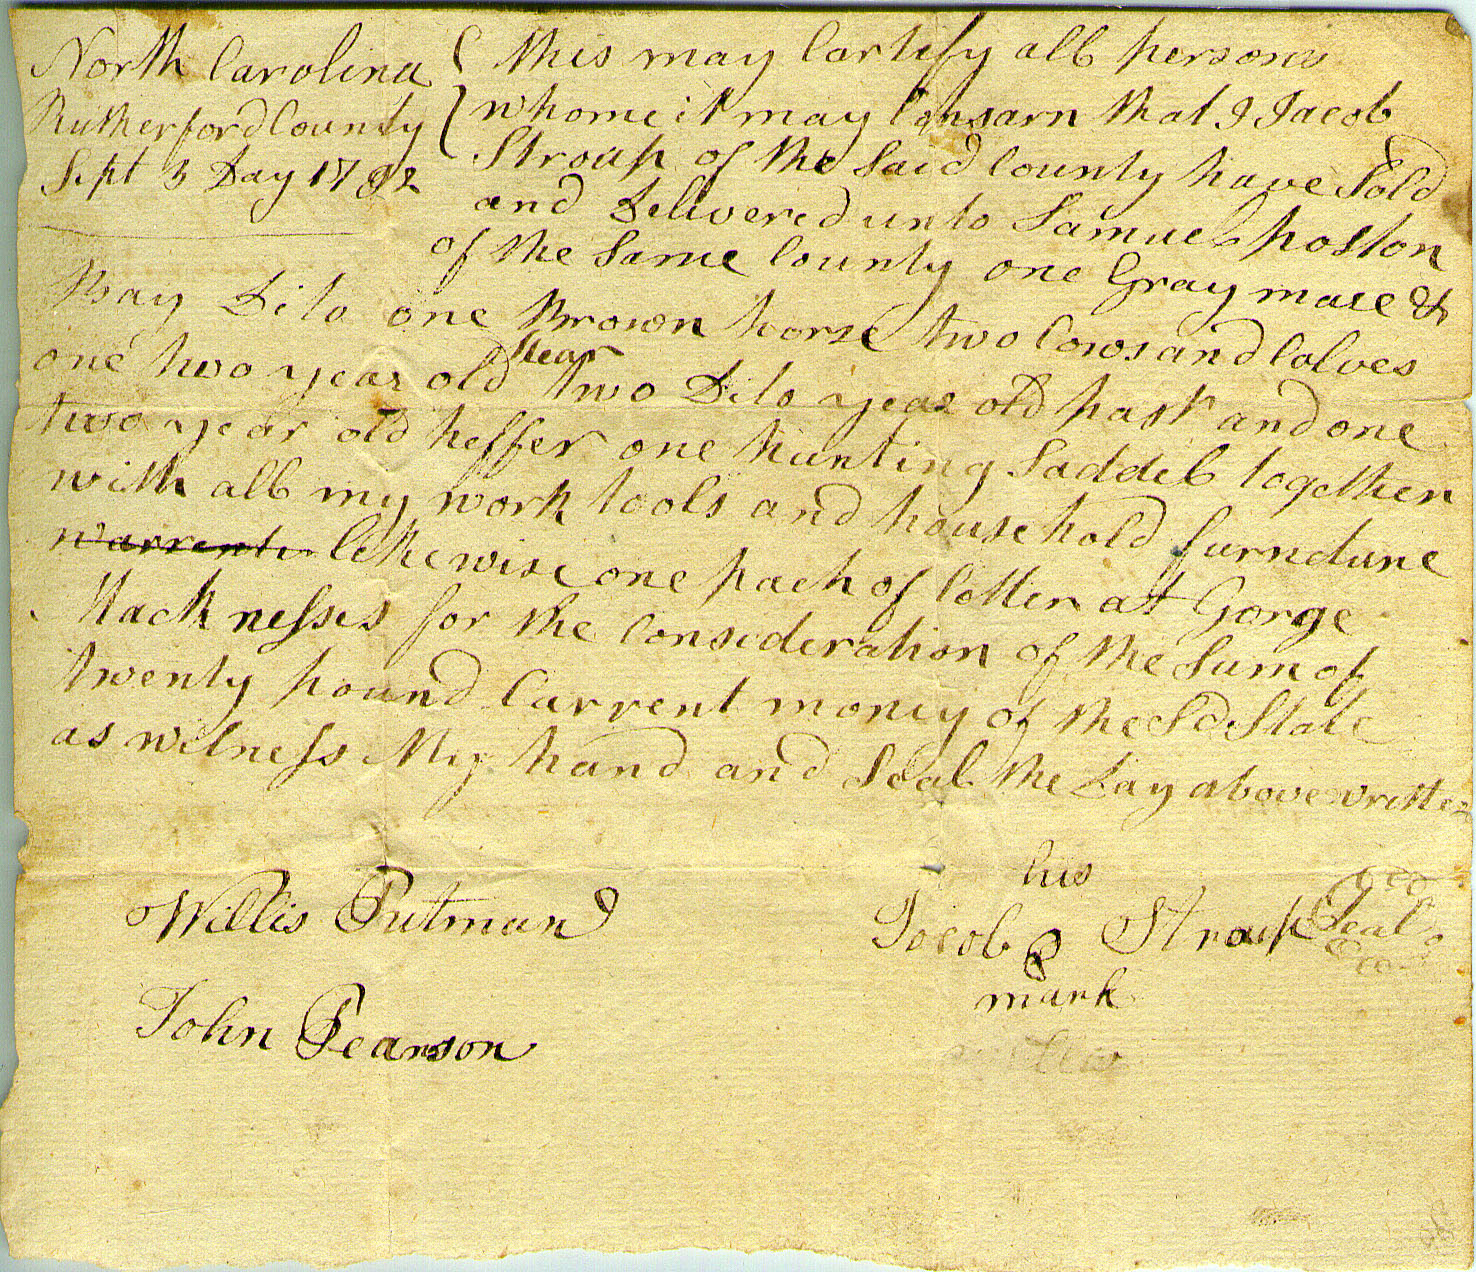 North Carolina
Rutherford County
Sept 3 Day 1792
this may Cartify all persons
whome it may Consarn that I Jacob
Stroup of the Said County have Sold
and Delivered unto Samuel poston
of the Same County one Gray mare &
Bay Dito one Brown horse two Cows and Calves
one two year old stear two Dito year old past and one
two year old heffer one hunting Saddel together
with all my work tools and household furndune
warrente likewise one pach of Cotten at Gorge
Mack nesses for the Consideration of the Sum of
twenty pound Carrent money of the Sd State
as witness My hand and Seal the Day above written
his
Willis Putman
Jacob Stroup Seal
mark
John Pearson